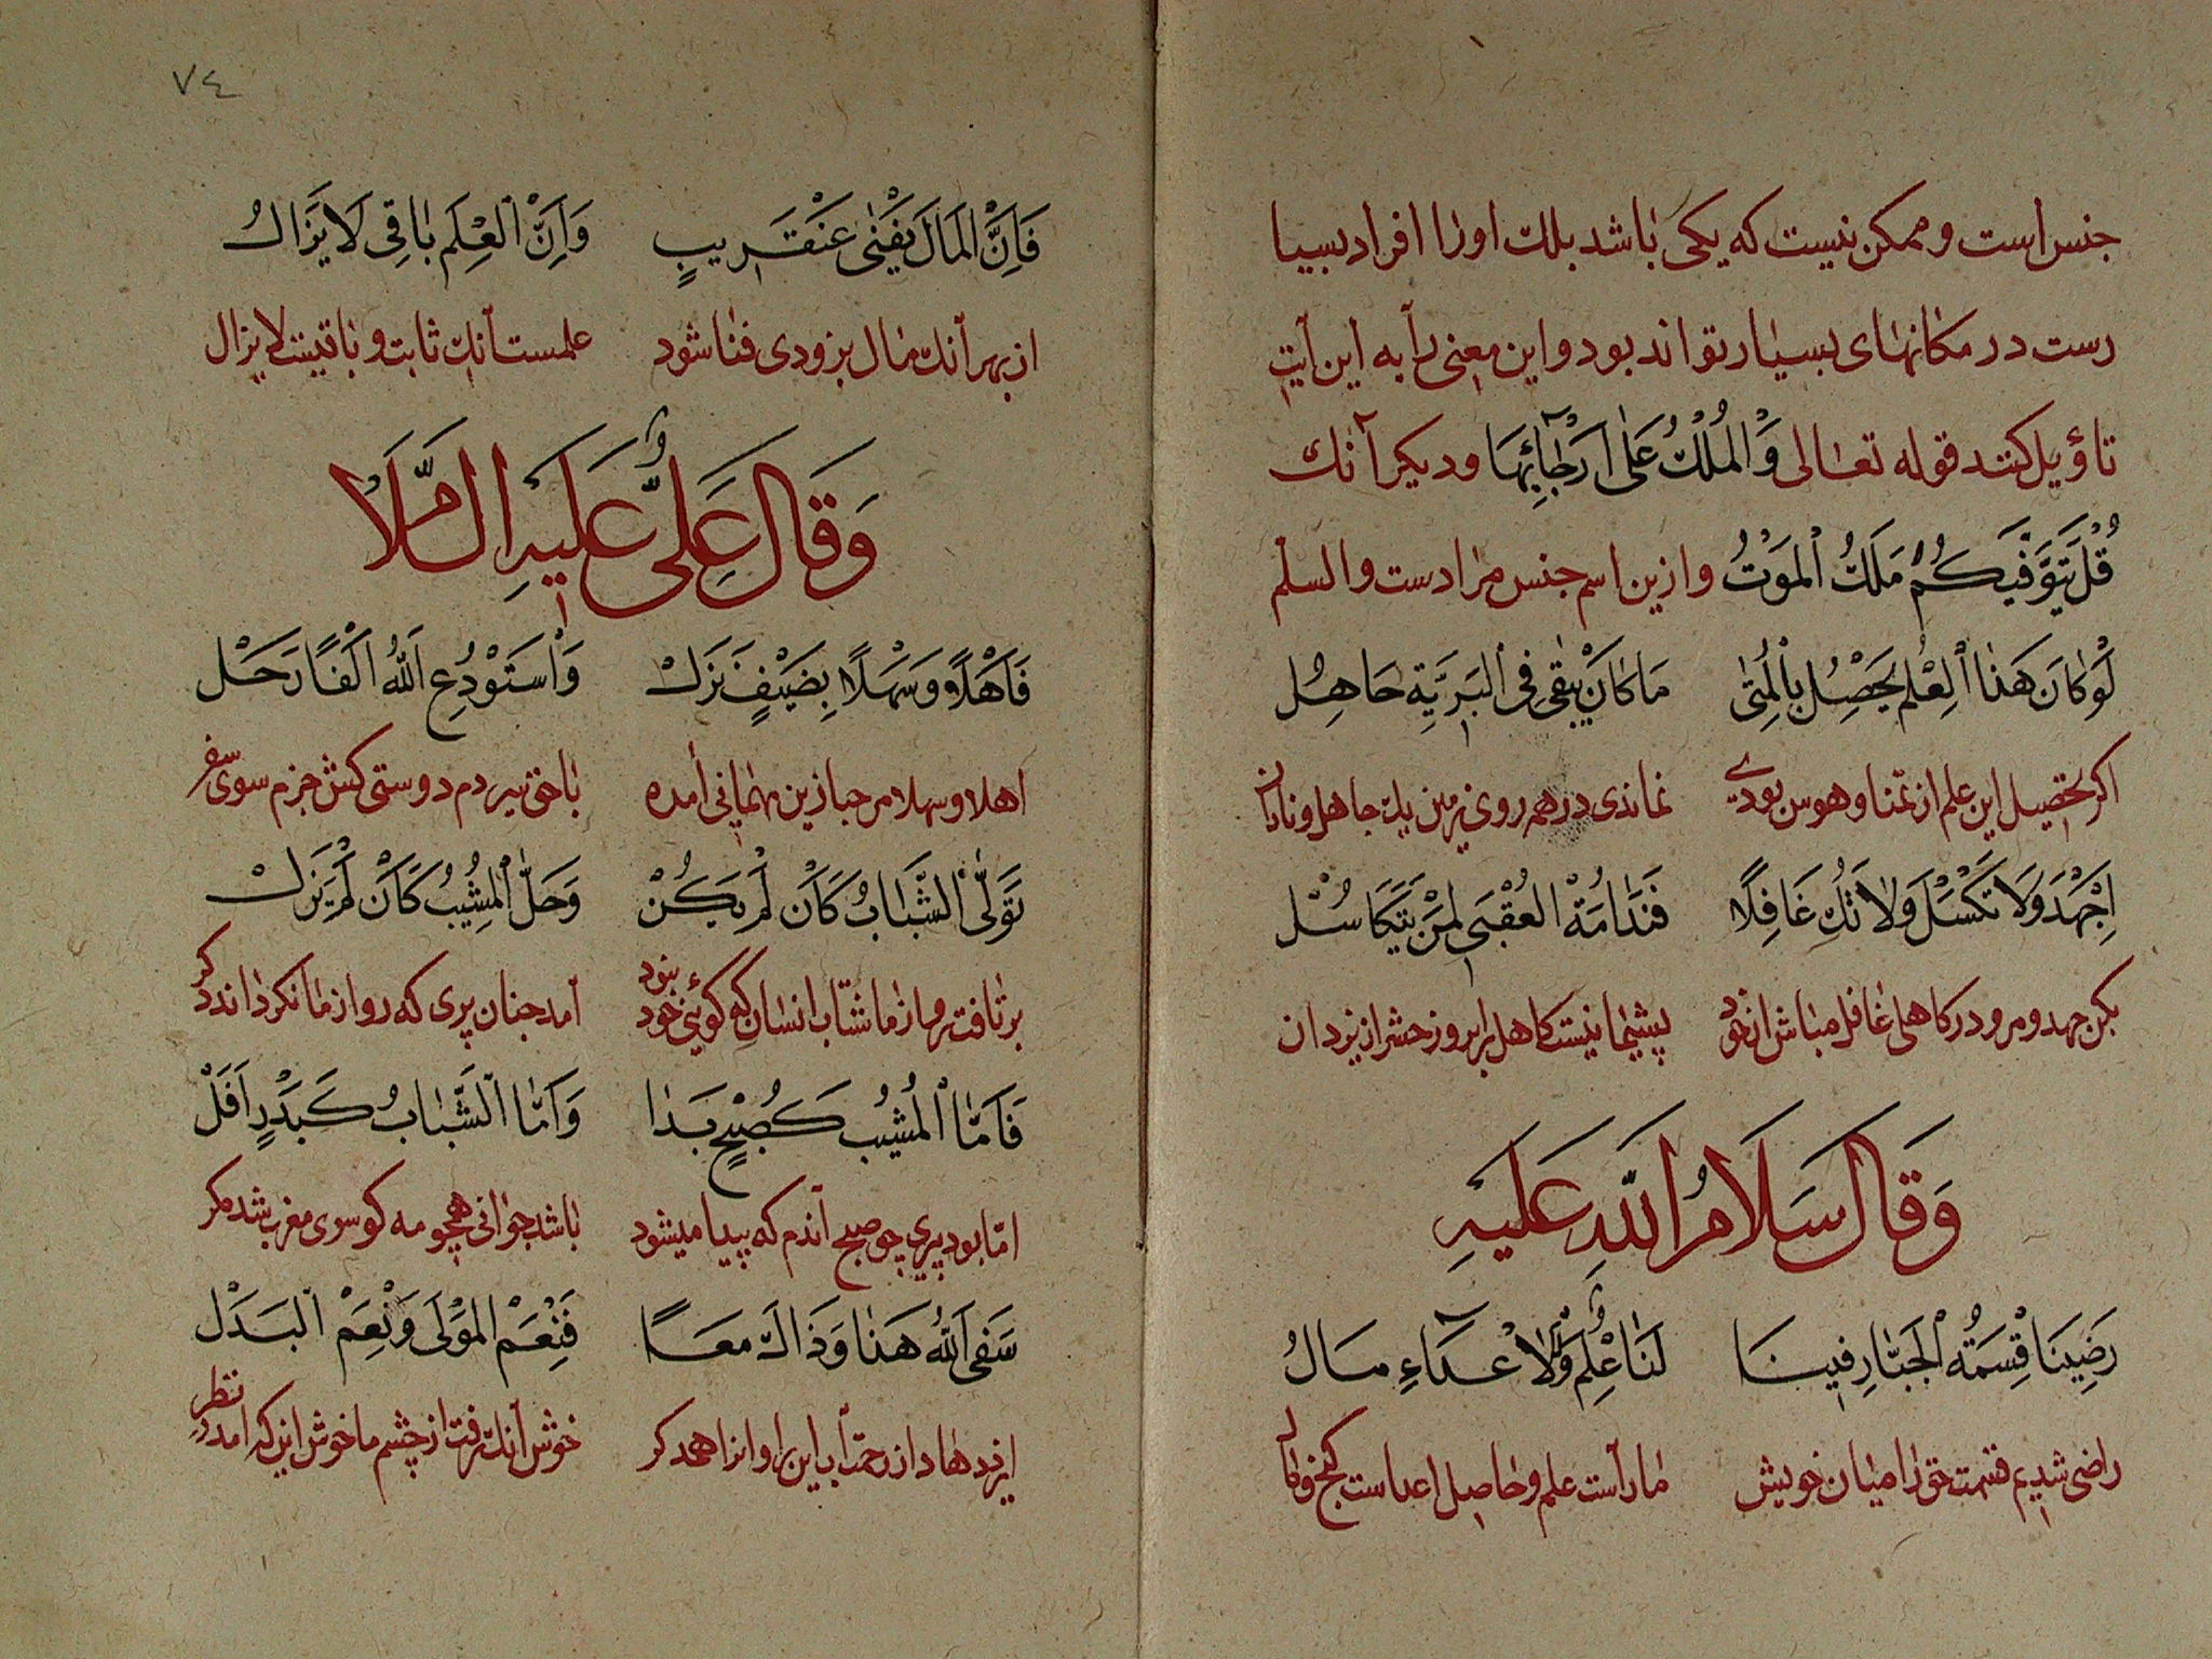 جنس است و ممکن نیست که یکی باشد بلک اورا افراد بسیا
رست در مکانهای بسیار تواند بود و این معنی را به این آیت
تاؤیل کنند قوله تعالی وَالْمُلْكُ عَلَى اَرْجَآئِهَا ودیکر آنك
قُلْ يَتَوَفَّيكُمْ مَلَكُ الْمَوْتُ وازین اسم جنس مرادست والسلم
لَوْ كَانَ هَذَا الْعِلْمُ يَحْصُلُ بِالْمُنَى مَا كَانَ يَبْقَى فِي الْبَرِيَّةِ جَاهِلُ
اکر تحصیل این علم از تمنا و هوس بودی نماندی در همه روی زمین یك جاهل و نادان
اِجْهَدْ وَلَا تَكْسَلْ وَلَا تَكُ غَافِلًا فَنَدَامَةُ الْعُقْبَى لِمَنْ يَتَكَاسُلْ
بکن جهد و مرو در کاهلی غافل مباش از خود پشیمانیست کاهل را بروز حشر از یزدان
وَقَالَ سَلَامُ اللّهِ عَلَيْهِ
رَضِينَا قِسْمَةَ الْجَبَّارِ فِينَا لَنَا عِلْمٌ وَلِلْاَعْدَآءِ مَالُ
راضی شدیم قسمت حق را میان خویش ما راست علم و حاصل اعداست کنج و مال
٧٤
فَاِنَّ الْمَالَ يَفْنَى عَنْ قَرِيبٍ وَاِنَّ الْعِلْمَ بَاقِي لَا يَزَالُ
از بهر آنك مال بزودی فنا شود علمست آنك ثابت و باقیست لا یزال
وَقَالَ عَلِيٌّ عَلَيْهِ السَّلَامُ
فَاَهْلًا وَسَهْلًا بِضَيْفٍ نَزَلْ وَاسْتَوْدِعِ اللّهُ اَلْفًا رَحَلْ
اهلا و سهلا مرحبا زین مهمانی آمده با حق سپردم دوستی کش جزم سوی سفر
تَوَلَّى الشَّبَابُ كَاَنْ لَمْ يَكُنْ وَحَلَّ الْمَشِيبُ كَاَنْ لَمْ يَزَلْ
برتافت رو از ما شتاب انسان که کوئی خود نبود آمد چنان پیری که رو از ما نکرداند دکر
فَاَمَّا الْمَشِيبُ كَصُبْحٍ بَدَا وَاَمَّا الشَّبَابُ كَبَدْرٍ اَفَلْ
اما بود پیری چو صبح آندم که پیدا میشود باشد جوانی همچو مه کو سوی مغرب شد مکر
سَقَى اللّهُ هَذَا وَذَاكَ مَعًا فَنِعْمَ الْمَوْلَى وَنِعْمَ الْبَدَلْ
ایزد دهاد از رحمت آب این را و انرا همدکر خوش آنك رفت از چشم ما خوش این که آمد در نظر